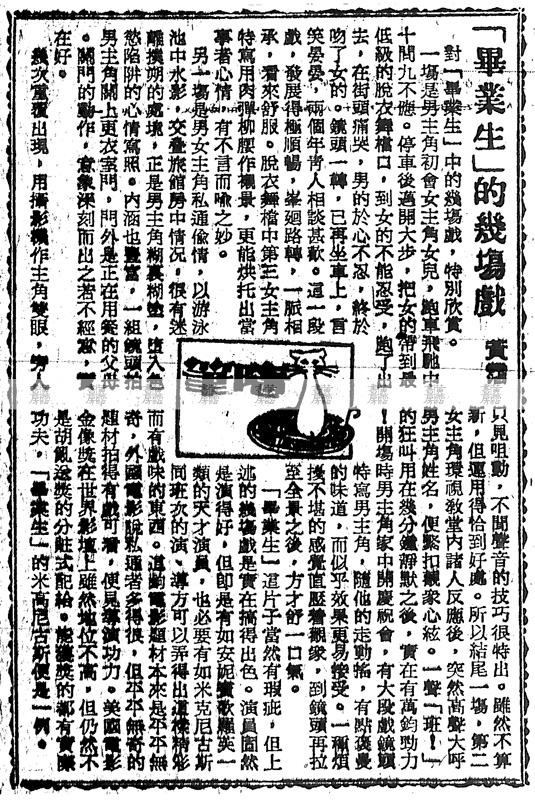 「畢業生」的幾場戲
對「畢業生」中的幾場戲，特別欣賞。
一場是男主角初會女主角女兒，跑車飛馳中
十問九不應。停車後邁開大步，把女的帶到最
低級的脫衣舞檔口，到女的不能忍受，跑了出
去，在街頭痛哭，男的於心不忍，終於
吻了女的。鏡頭一轉，已再坐車上，言
笑晏晏，兩個年青人相談甚歡。這一段
戲，發展得極順暢，峯迴路轉，一脈相
承，看來舒服。脫衣舞檔中第三女主角
特寫用肉彈柳腰作襯景，更能烘托出當
事者心情，有不言而喻之妙。
另一場是男女主角私通偸情，以游泳
池中水影，交叠旅館房中情况，很有迷
離撲朔的處境，正是男主角糊裏糊塗，墮入色
慾陷阱的心情寫照。內涵也豐富，一組鏡頭拍
男主角關上更衣室門，門外是正在用餐的父母
。關門的動作，意象深刻而出之若不經意，實
在好。
幾次重覆出現，用攝影機作主角雙眼，旁人
只見咀動，不聞聲音的技巧很特出。雖然不算
新，但運用得恰到好處。所以結尾一場，第二
女主角環視敎堂內諸人反應後，突然高聲大呼
男主角姓名，便緊扣觀衆心絃。一聲「班！」
的狂叫用在幾分鐘靜默之後，實在有萬鈞勁力
！開場時男主角家中開慶祝會，有大段戲鏡頭
特寫男主角，隨他的走動搖，有點褒曼
的味道，而似乎效果更易接受。一種煩
擾不堪的感覺直壓着觀衆，到鏡頭再拉
至全景之後，方才舒一口氣。
「畢業生」這片子當然有瑕疵，但上
述的幾場戲是實在搞得出色。演員固然
是演得好，但卽是有如安妮賓歌羅英一
類的天才演員，也必要有如米克尼古斯
同班次的演、導方可以弄得出這樣精彩
而有戲味的東西。這齣電影題材本來是平平無
奇，外國電影說私通者多得很，但平平無奇的
題材拍得有戲可看，便見導演功力。美國電影
金像獎在世界影壇上雖然地位不高，但仍然不
是胡亂送獎的分赃式配給。能獲獎的都有實際
功夫，「畢業生」的米高尼古斯便是一例。